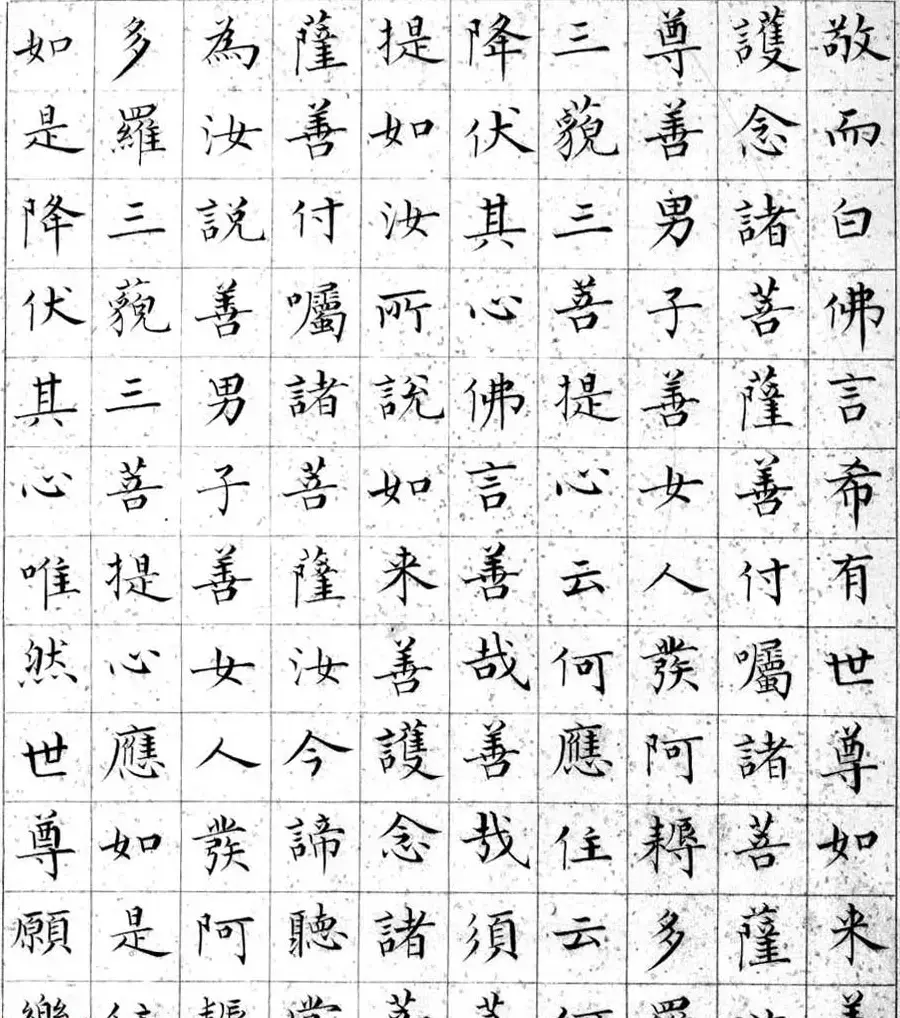 敬而白佛言希有世尊如来善
護念諸菩薩善付囑諸菩薩
尊善男子善女人發阿耨多羅
三藐三菩提心云何應住云何
降伏其心佛言善哉善哉須菩
提如汝所說如来善護念諸菩
薩善付囑諸菩薩汝今諦聽當
為汝說善男子善女人發阿耨
多羅三藐三菩提心應如是住
如是降伏其心唯然世尊願樂